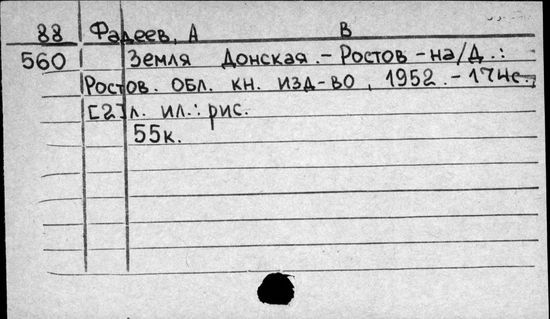 88 Фадеев, А В
560 Земля Донская. – Ростов – на/Д. :
Ростов. обл. кн. изд-во, 1952. – 174с.,
[2]л. ил.: рис.
55к.